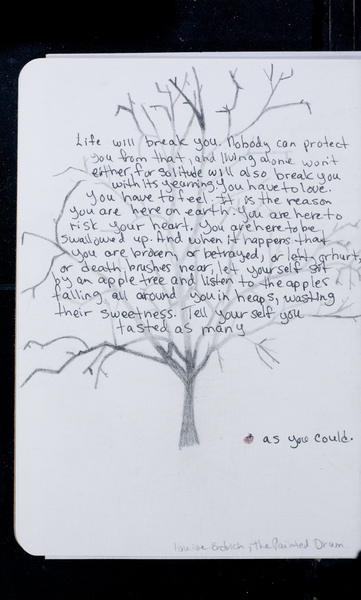 Life will break you. Nobody can protect
you from that, and living alone won't
either, for solitude will also break you
with its yearning. You have to love.
You have to feel. It is the reason
you are here on earth. You are here to
risk your heart. You are here to be
swallowed up. And when it happens that
you are broken, or betrayed, or left, or hurt,
or death brushes near, let yourself sit
by an apple tree and listen to the apples
falling all around you in heaps, wasting
their sweetness. Tell yourself you
tasted as many
as you could.
Louise Erdrich, The Painted Drum